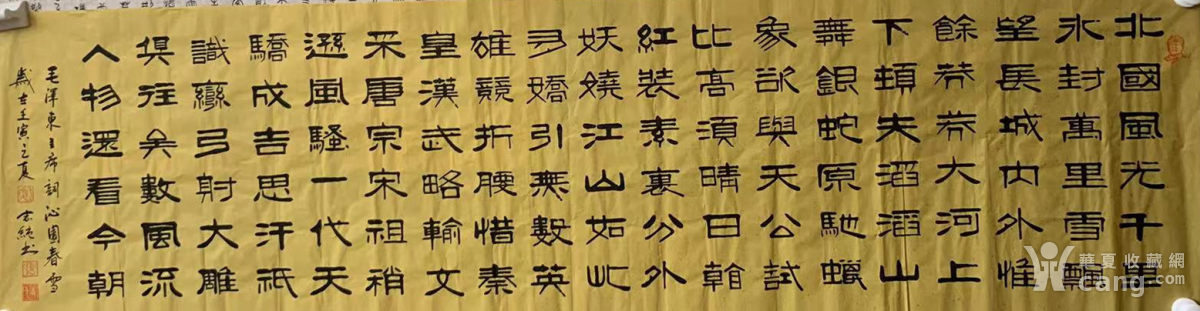 北國風光千里
冰封萬里雪飄
望長城內外惟
餘莽莽大河上
下頓失滔滔山
舞銀蛇原馳蠟
象欲與天公試
比高須晴日
紅裝素裹分外
妖嬈江山如此
多嬌引無數英
雄競折腰惜秦
皇漢武略輸文
采唐宗宋祖稍
遜風騷一代天
驕成吉思汗祇
識彎弓射大雕
俱往矣數風流
人物還看今朝
毛澤東主席詞沁園春雪
歲在壬寅之夏
華夏收藏網
cang.com